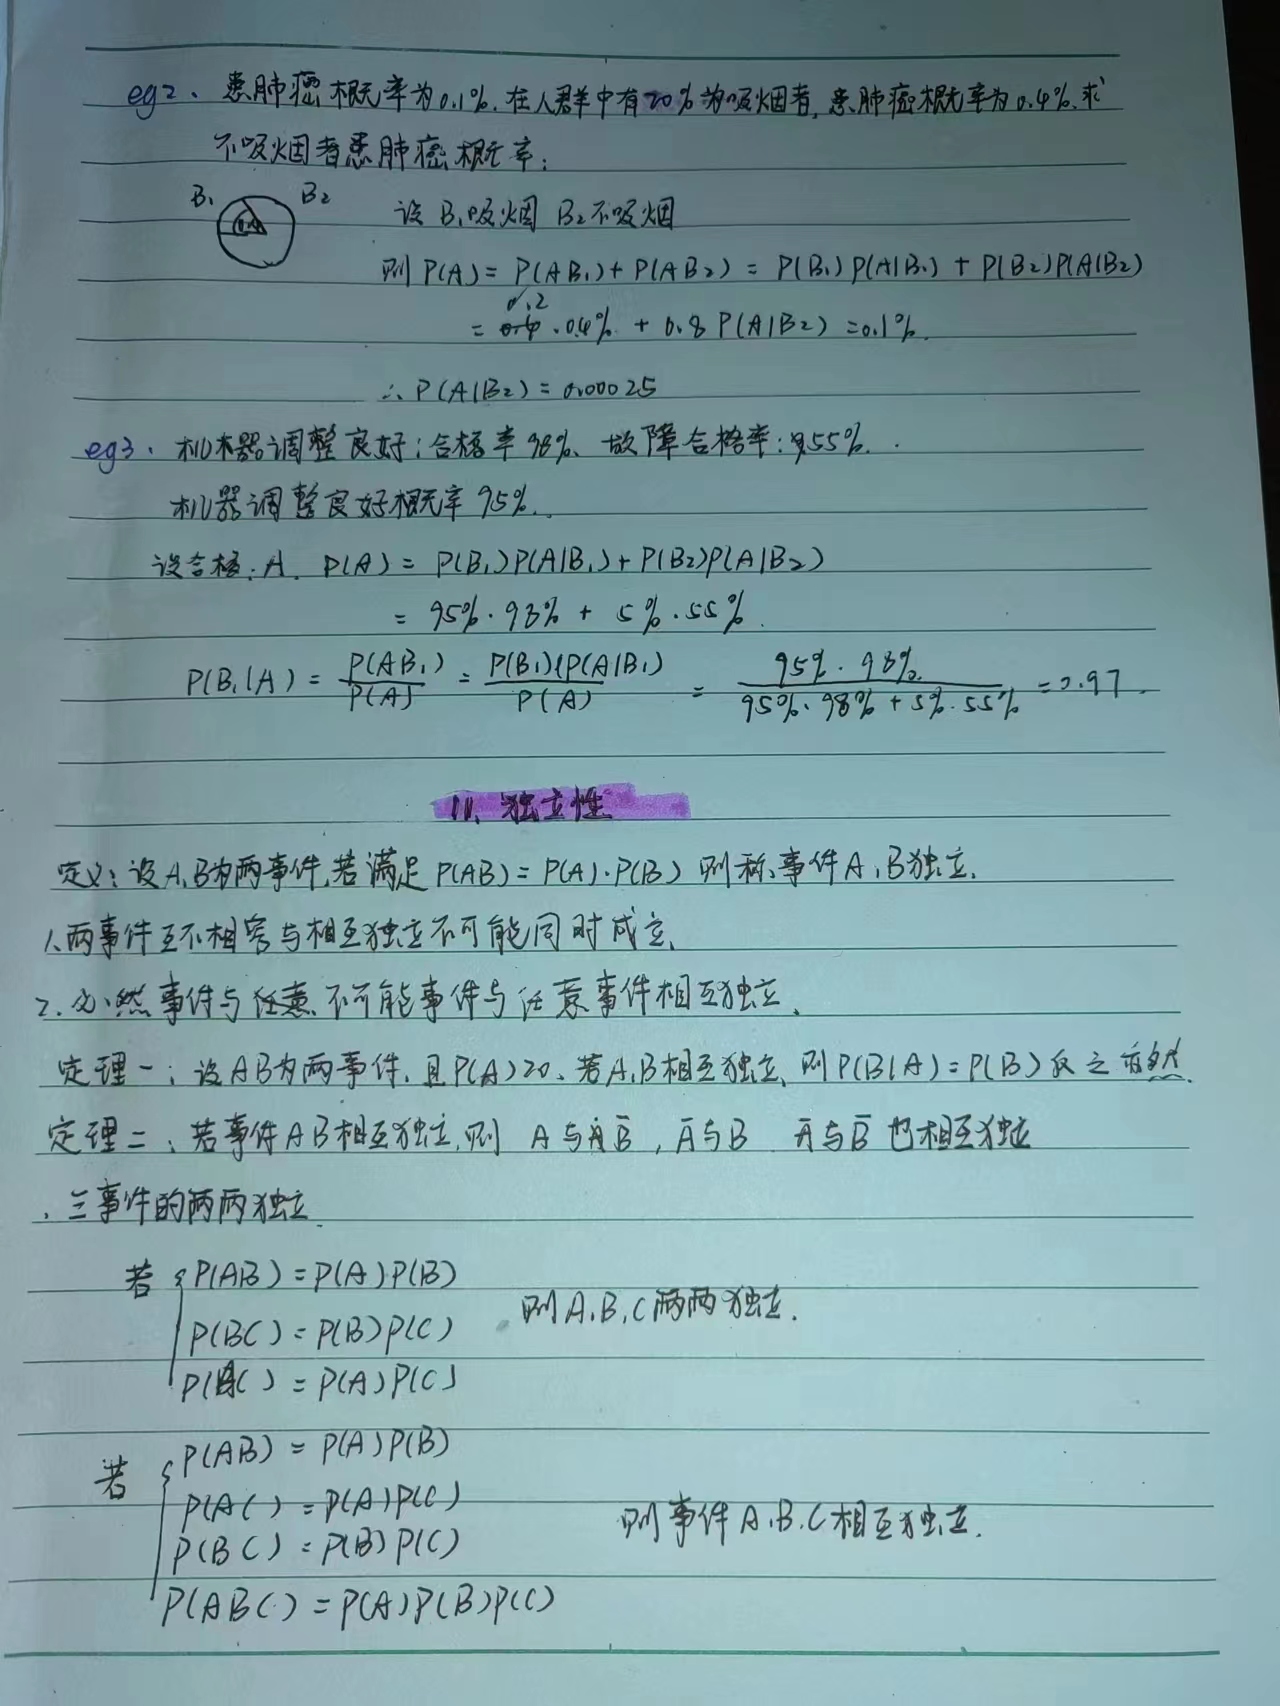 eg2、患肺癌概率为0.1%.在人群中有20%为吸烟者,患肺癌概率为0.4%.求
不吸烟者患肺癌概率:
B₁ B₂ 设B₁吸烟 B₂不吸烟
则P(A)=P(AB₁)+P(AB₂)=P(B₁)P(A|B₁)+P(B₂)P(A|B₂)
0.2
=·0.4%+0.8P(A|B₂)=0.1%.
∴P(A|B₂)=0.00025
eg3.机器调整良好:合格率98%、故障合格率:55%.
机器调整良好概率95%.
设合格:A. P(A)=P(B₁)P(A|B₁)+P(B₂)P(A|B₂)
=95%·98%+5%·55%.
P(B₁|A)=P(AB₁)/P(A)=P(B₁)P(A|B₁)/P(A)=95%·98%/95%·98%+5%·55%=0.97.
11、独立性
定义:设A,B为两事件,若满足P(AB)=P(A)·P(B)则称,事件A,B独立.
1、两事件互不相容与相互独立不可能同时成立、
2.必然事件与任意、不可能事件与任意事件相互独立、
定理一:设AB为两事件、且P(A)>0、若A,B相互独立、则P(B|A)=P(B)反之亦然.
定理二:若事件AB相互独立,则 A与B̅,A̅与B A̅与B̅也相互独立
、三事件的两两独立.
若{P(AB)=P(A)·P(B)
P(BC)=P(B)P(C) 则A,B,C两两独立.
P(AC)=P(A)P(C)
若{P(AB)=P(A)P(B)
P(AC)=P(A)P(C) 则事件A,B,C相互独立.
P(BC)=P(B)P(C)
P(ABC)=P(A)P(B)P(C)